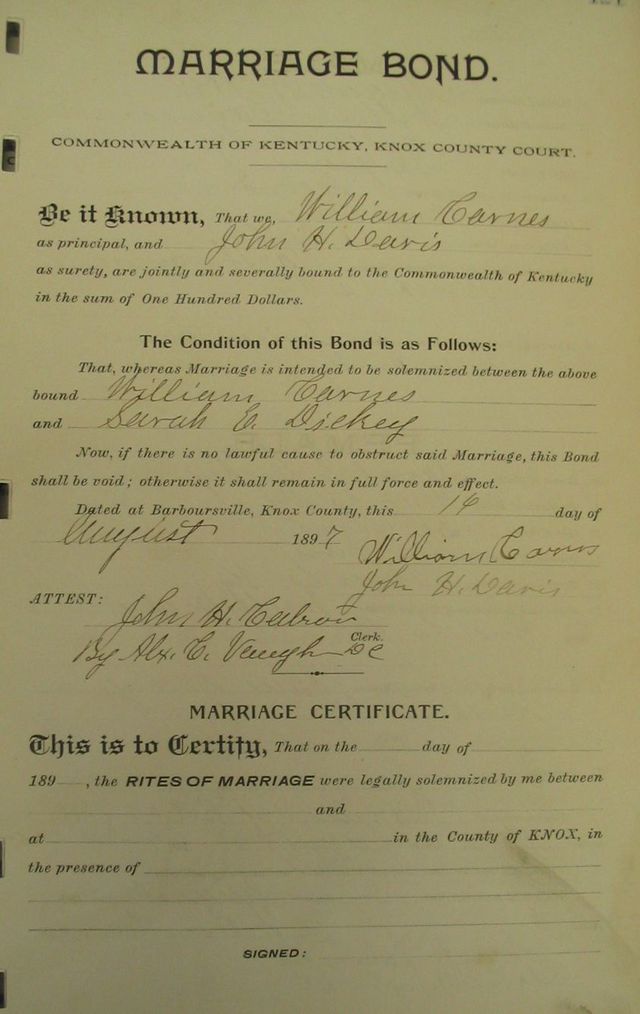 MARRIAGE BOND.
COMMONWEALTH OF KENTUCKY, KNOX COUNTY COURT.
Be it Known, That we, William Carnes
as principal, and John H. Davis
as surety, are jointly and severally bound to the Commonwealth of Kentucky
in the sum of One Hundred Dollars.
The Condition of this Bond is as Follows:
That, whereas Marriage is intended to be solemnized between the above
bound William Carnes
and Sarah E. Dickey
Now, if there is no lawful cause to obstruct said Marriage, this Bond
shall be void; otherwise it shall remain in full force and effect.
Dated at Barboursville, Knox County, this 14 day of
August 1897
William Carnes
John H. Davis
ATTEST:
John H.
Clerk.
By Alx. C. Vaughn DC
MARRIAGE CERTIFICATE.
This is to Certify, That on the day of
189 , the RITES OF MARRIAGE were legally solemnized by me between
and
at in the County of KNOX, in
the presence of
SIGNED: